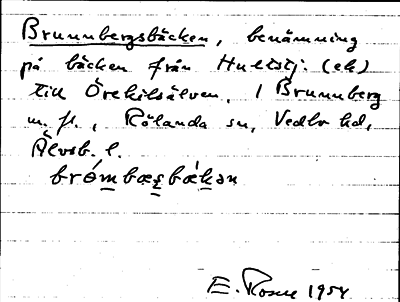 Brunnbergsbäcken, benämning
på bäcken från Hultstj. (ek)
till Örekilsälven. / Brunnberg
m. fl., Rölanda sn, Vedbo hd,
Älvsb. l.
brómbæṣbækən
E. Rosen 1954